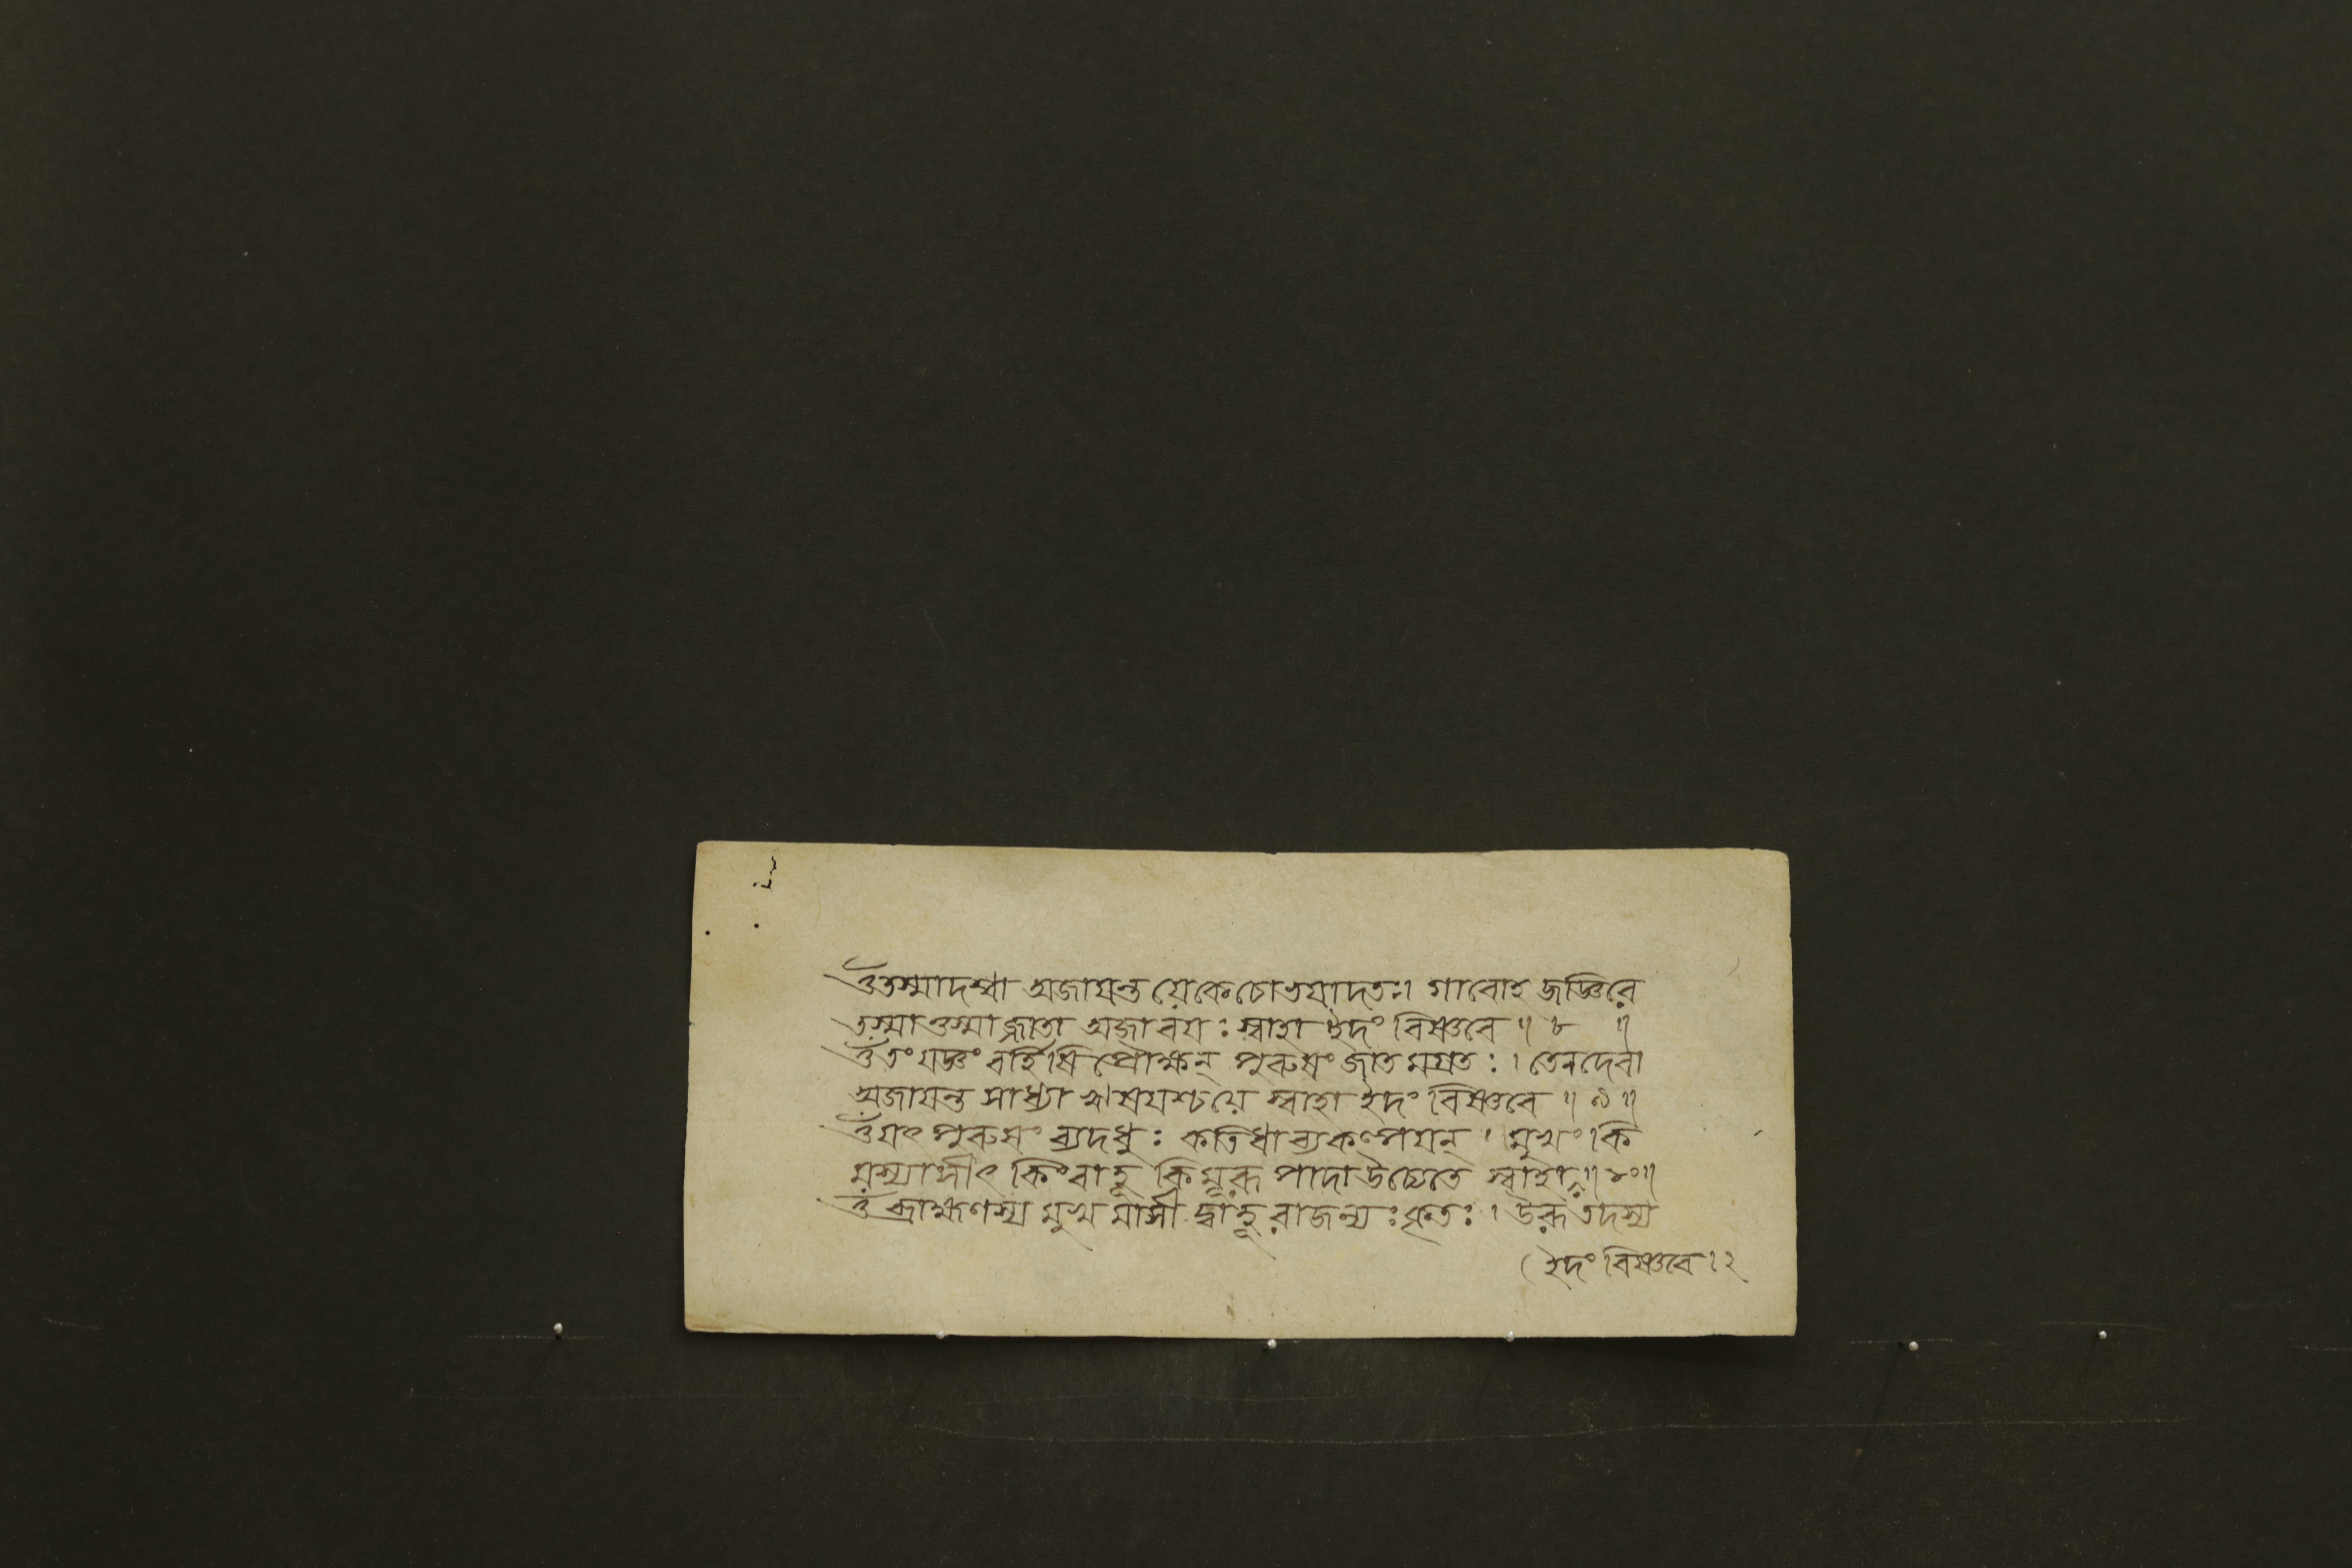 ওঁতস্মাদশ্বা অজাযন্ত যেকেচোভযাদতঃ। গাবোহ জজ্ঞিরে
তস্মাত্তস্মাজ্জাতা অজাবযঃ স্বাহা ইদং বিষ্ণবে॥ ৮ ॥
ওঁতং যজ্ঞং বর্হিষি প্রৌক্ষন্ পুরুষং জাতমগ্রতঃ। তেনদেবা
অজাযন্ত সাধ্যা ঋষযশ্চযে স্বাহা ইদং বিষ্ণবে॥ ৯॥
ওঁযৎ পুরুষং ব্যদধুঃ কতিধা ব্যকল্পযন্। মুখং কি
মস্যাসীৎ কিংবাহূ কিমূরূ পাদাউচ্যেতে স্বাহা॥১০॥
ওঁ ব্রাহ্মণস্য মুখমাসী দ্বাহূ রাজন্যঃ কৃতঃ। উরূ তদস্য
(ইদং বিষ্ণবে।২